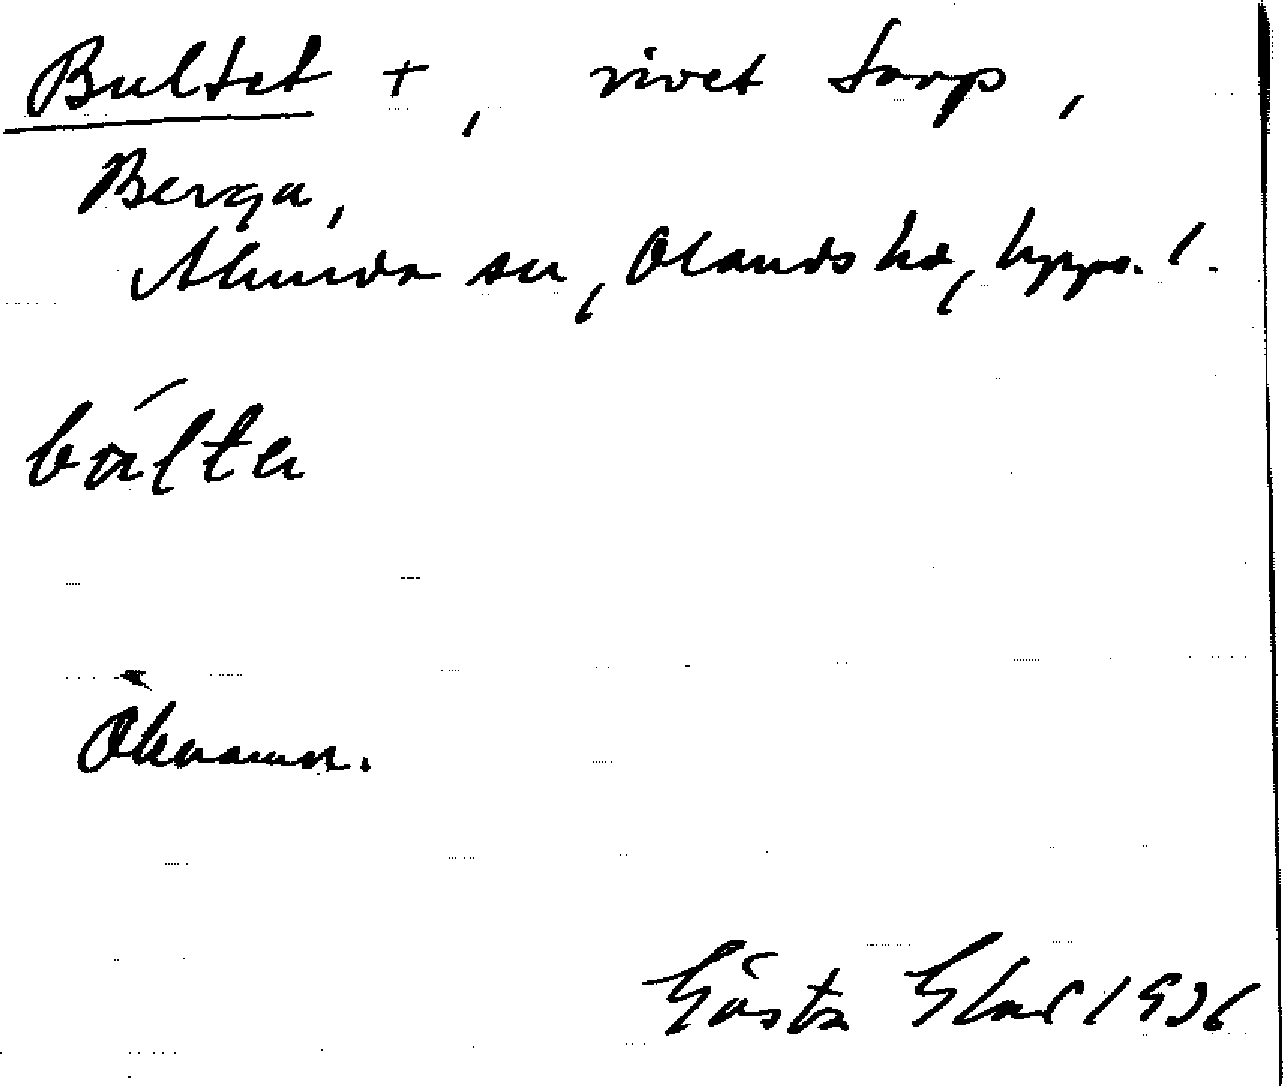 Bultet +, rivet torp,
Berga,
Alunda sn, Olands hd, Upps. l.
bólta
Öknamn.
Gösta Ekad 1936